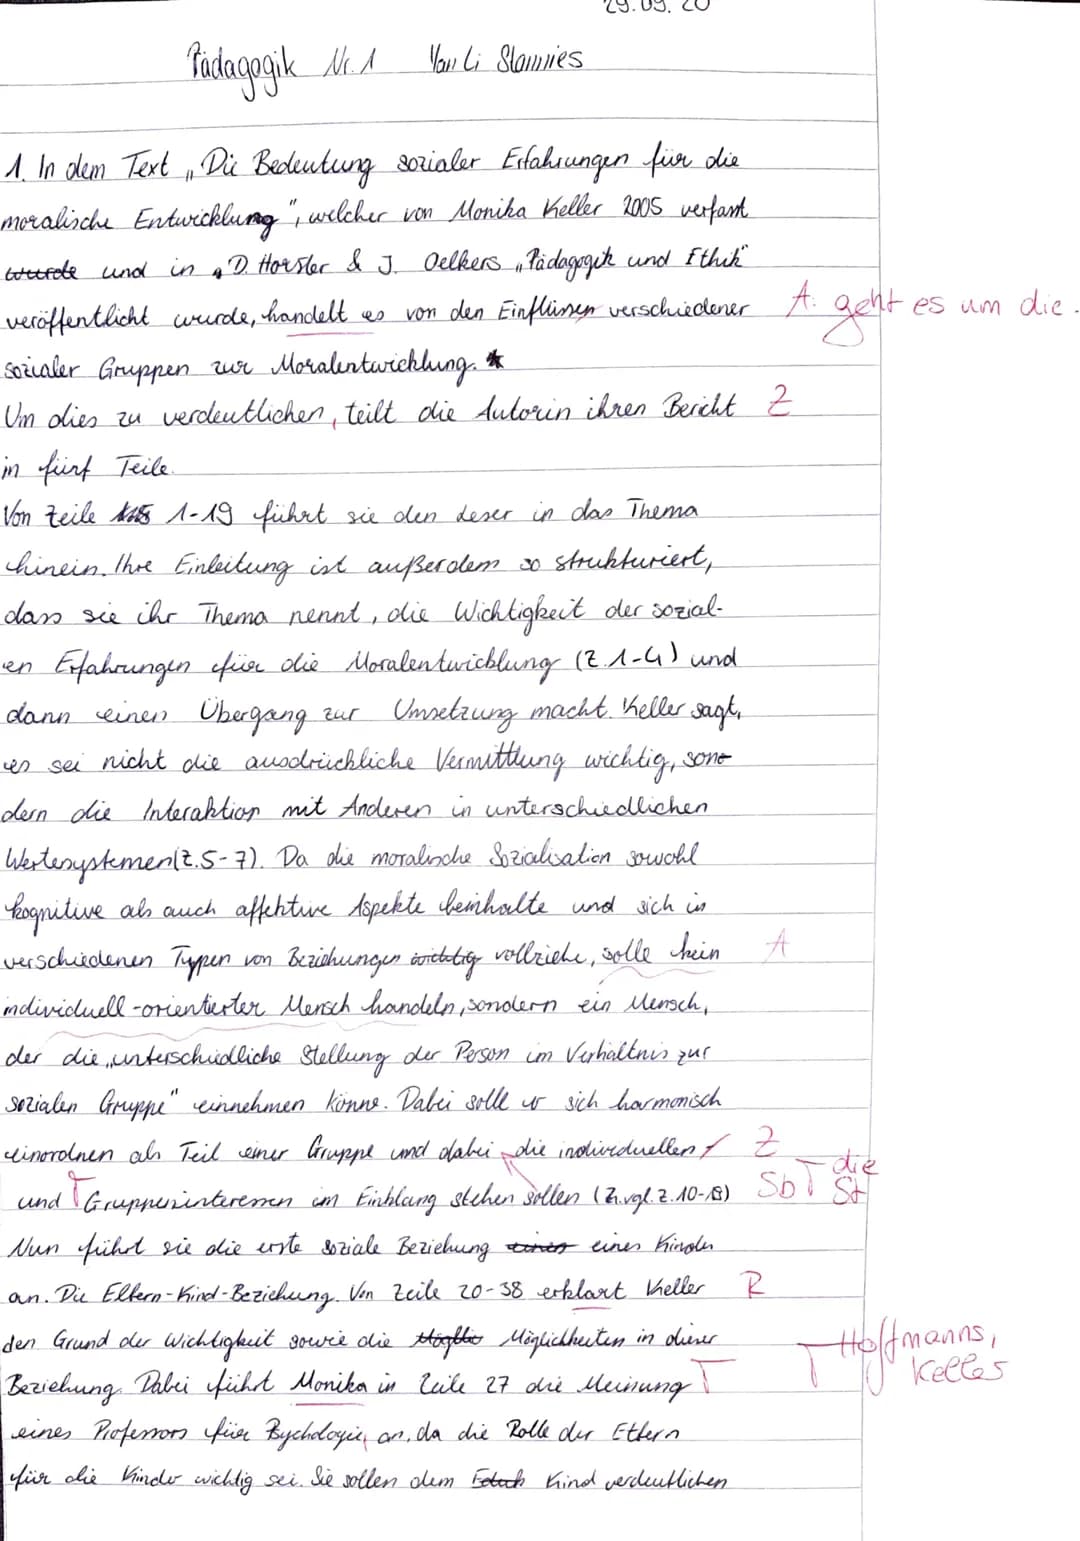 29.09.20
Pädagogik Nr. 1 Yan Li Slomnies
1. In dem Text „Die Bedeutung sozialer Erfahrungen für die
moralische Entwicklung", welcher von Monika Keller 2005 verfasst
wurde und in D. Horster & J. Oelkers „Pädagogik und Ethik"
veröffentlicht wurde, handelt es von den Einflüssen verschiedener A: geht es um die.
sozialer Gruppen zur Moralentwicklung. *
Um dies zu verdeutlichen, teilt die Autorin ihren Bericht Z
in fünf Teile.
Von Zeile 1-19 führt sie den Leser in das Thema
hinein. Ihre Einleitung ist außerdem so strukturiert,
dass sie ihr Thema nennt, die Wichtigkeit der sozial-
en Erfahrungen für die Moralentwicklung (Z.1-4) und
dann einen Übergang zur Umsetzung macht. Keller sagt,
es sei nicht die ausdrückliche Vermittlung wichtig, son-
dern die Interaktion mit Anderen in unterschiedlichen
Wertesystemen(Z.5-7). Da die moralische Sozialisation sowohl
kognitive als auch affektive Aspekte beinhalte und sich in
verschiedenen Typen von Beziehungen wichtig vollziehe, solle kein A
individuell-orientierter Mensch handeln, sondern ein Mensch,
der die „unterschiedliche Stellung der Person im Verhältnis zur
sozialen Gruppe" einnehmen könne. Dabei solle er sich harmonisch
einordnen als Teil einer Gruppe und dabei die individuellen Z
und Gruppeninteressen im Einklang stehen sollen (Z.vgl.Z.10-18) Sb die St
Nun führt sie die erste soziale Beziehung eines eines Kindes
an. Die Eltern-Kind-Beziehung. Von Zeile 20-38 erklart Keller R
den Grund der Wichtigkeit sowie die Möglichkeiten in dieser Hoffmanns,
Beziehung. Dabei führt Monika in Zeile 27 die Meinung Keller
eines Professors für Psychologie, an, da die Rolle der Eltern
für die Kinder wichtig sei. Sie sollen dem Kind verdeutlichen